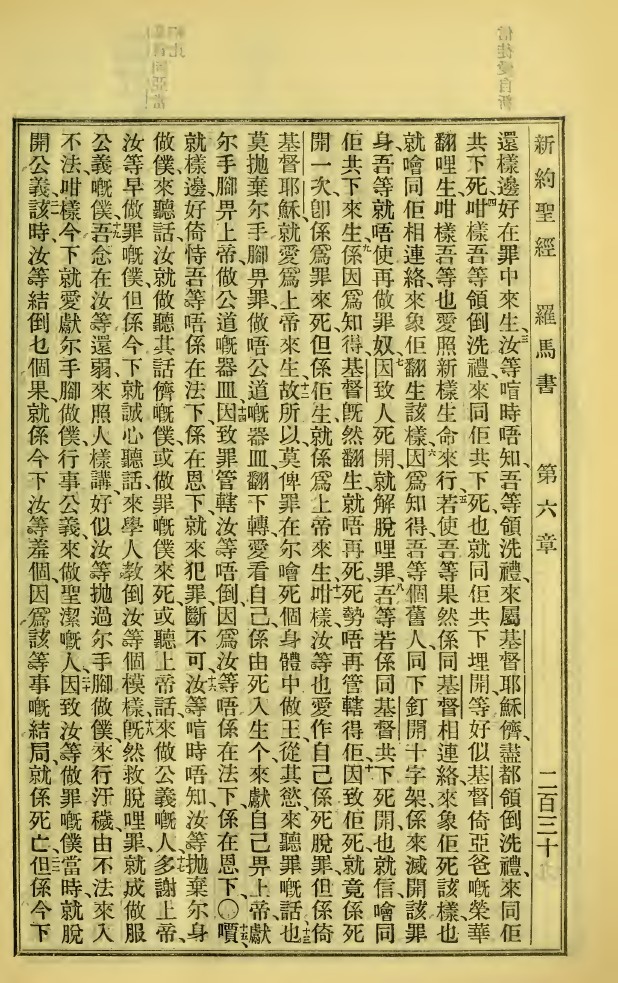 新約聖經 羅馬書 第六章 二百三十
還樣邊好在罪中來生、三汝等喧時唔知、吾等領洗禮、來屬基督耶穌儕、盡都領倒洗禮、來同佢
共下死、四咁樣吾等領倒洗禮、來同佢共下死、也就同佢共下埋開、等好似基督倚亞爸嘅榮華
翻哩生、咁樣吾等也愛照新樣生命來行、五若使吾等果然係同基督相連絡、來象佢死該樣、也
就噲同佢相連絡、來象佢翻生該樣、六因爲知得吾等個舊人、同下釘開十字架、係來滅開該罪
身、吾等就唔使再做罪奴、七因致人死開、就解脫哩罪、八吾等若係同基督共下死開、也就信噲同
佢共下來生、九係因爲知得基督旣然翻生、就唔再死、死勢唔再管轄得佢、十因致佢死、就竟係死
開一次、卽係爲罪來死、但係佢生、就係爲上帝來生、十一咁樣汝等也愛作自己係死脫罪、但係倚
基督耶穌、就愛爲上帝來生、十二故所以莫俾罪在尔噲死個身體中做王、從其慾來聽罪嘅話、十三也
莫抛棄尔手腳畀罪、做唔公道嘅器皿、翻下轉愛看自己係由死入生个、來獻自己畀上帝、獻
尔手腳畀上帝、做公道嘅器皿、十四因致罪管轄汝等唔倒、因爲汝等唔係在法下、係在恩下、〇十五嘪
就樣邊好倚恃吾等唔係在法下、係在恩下、就來犯罪、斷不可、十六汝等喧時唔知、汝等抛棄尔身
做僕來聽話、汝就做聽其話儕嘅僕、或做罪嘅僕來死、或聽上帝話來做公義嘅人、十七多謝上帝、
汝等早做罪嘅僕、但係今下就誠心聽話、來學人教倒汝等個模樣、十八旣然救脫哩罪、就成做服
公義嘅僕、十九吾念在汝等還弱、來照人樣講、好似汝等抛過尔手腳做僕、來行汙穢、由不法來入
不法、咁樣今下就愛獻尔手腳做僕、行事公義、來做聖潔嘅人、二十因致汝等做罪嘅僕當時、就脫
開公義、二一該時汝等結倒乜個果、就係今下汝等羞個、因爲該等事嘅結局、就係死亡、二二但係今下